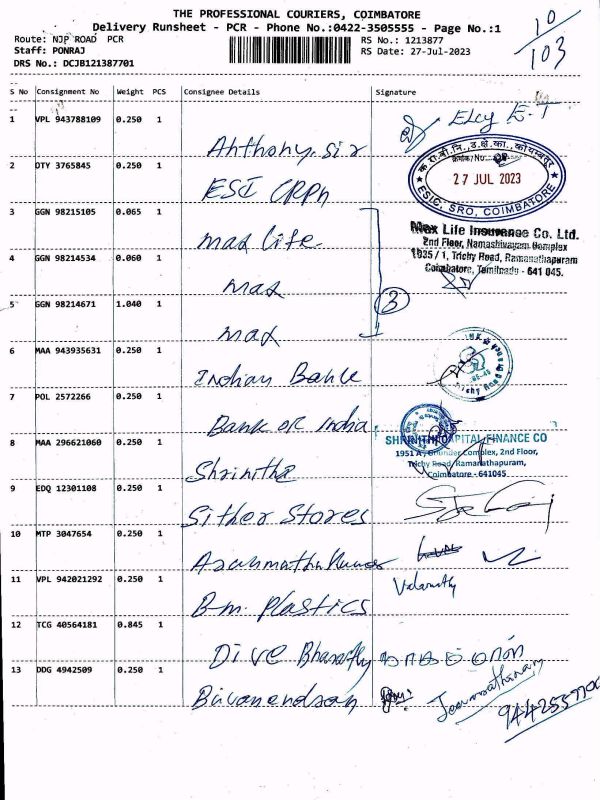 THE PROFESSIONAL COURIERS, COIMBATORE
Delivery Runsheet - PCR - Phone No.:0422-3505555 - Page No.:1
10/103
Route: NJP ROAD PCR
RS No.: 1213877
Staff: PONRAJ
RS Date: 27-Jul-2023
DRS No.: DCJB121387701
S No Consignment No Weight PCS Consignee Details Signature
1 VPL 943788109 0.250 1 Anthony. sir Elcy E.T
2 DTY 3765845 0.250 1 ESI CRPn
क.रा.बी.नि., उ.क्षे.का., कोयम्बत्तूर
क्रमांक/No.
27 JUL 2023
ESIC, SRO, COIMBATORE
3 GGN 98215105 0.065 1 max life
Max Life Insurance Co. Ltd.
2nd Floor, Namashivayam Complex
1035 / 1, Trichy Road, Ramanathapuram
Coimbatore, Tamilnadu - 641 045.
4 GGN 98214534 0.060 1 max
3
5 GGN 98214671 1.040 1 max
6 MAA 943935631 0.250 1 Indian Bank
Trichy Road
7 POL 2572266 0.250 1 Bank of India
8 MAA 296621060 0.250 1 Shrinitha
SHRINITHI CAPITAL FINANCE CO
Complex, 2nd Floor,
Trichy Road, Ramanathapuram,
Coimbatore - 641045
9 EDQ 12301108 0.250 1 Sither Stores
10 MTP 3047654 0.250 1
11 VPL 942021292 0.250 1 B.m. Plastics
12 TCG 40564181 0.845 1 Dive Bharathy
13 DDG 4942509 0.250 1